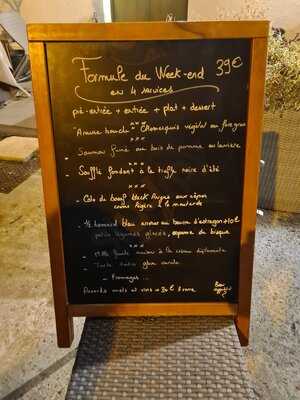 Formule du Week-end 39€
en 4 services
pré-entrée + entrée + plat + dessert
- "Amuse bouche" Cromesquis végétal au foie gras
- Saumon fumé au bois de pomme
- Soufflé fondant à la truffe noire d'été
- Côte de boeuf black Angus aux cèpes
crème légère à la moutarde
- ½ homard bleu au beurre d'estragon +10€
petits légumes glacés, espuma de bisque
- Mille feuille
- Tarte
- Fromages...
Accords mets et vins = 20€
Bon appétit